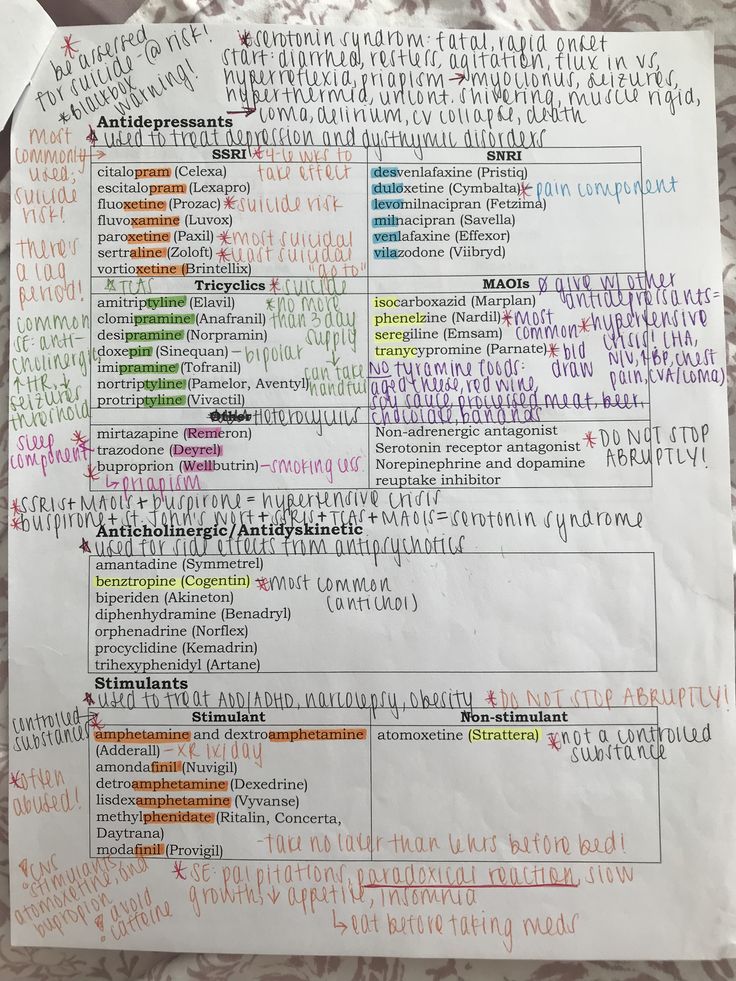 * be assessed
for suicide @ risk!
* blackbox
warning!
* serotonin syndrom: fatal, rapid onset
start: diarrhea, restless, agitation, flux in vs,
hyperreflexia, priapism → myoclonus, seizures,
hyperthermia, uncont. shivering, muscle rigid,
→ coma, delirium, cv collapse, death
Antidepressants
* used to treat depression and dysthymic disorders
most
commonly →
used;
suicide
risk!
there's
a lag
period!
SSRI * 4-6 wks to
take effect
citalopram (Celexa)
escitalopram (Lexapro)
fluoxetine (Prozac) * suicide risk
fluvoxamine (Luvox)
paroxetine (Paxil) * most suicidal
sertraline (Zoloft) * least suicidal
vortioxetine (Brintellix) "go to"
SNRI
desvenlafaxine (Pristiq)
duloxetine (Cymbalta) * pain component
levomilnacipran (Fetzima)
milnacipran (Savella)
venlafaxine (Effexor)
vilazodone (Viibryd)
common
SE: anti-
cholinergic
↑HR, ↓
seizures
threshold
* TCAs Tricyclics * suicide
amitriptyline (Elavil) * no more
clomipramine (Anafranil) than 3 day
desipramine (Norpramin) supply
doxepin (Sinequan) – bipolar
imipramine (Tofranil) ↳ can take
nortriptyline (Pamelor, Aventyl) handful
protriptyline (Vivactil)
MAOIs Ø give w/ other
antidepressants =
isocarboxazid (Marplan)
phenelzine (Nardil) * most
common
* hypertensive
crisis! (HA,
N/V, ↑BP, chest
pain, CVA/coma)
seregiline (Emsam)
tranycypromine (Parnate) * bid
draw
NO tyramine foods:
aged cheese, red wine,
soy sauce, processed meat, beer,
chocolate, bananas
Other Heterocyclics
sleep
component
mirtazapine (Remeron)
trazodone (Deyrel)
buproprion (Wellbutrin) – smoking cess.
↳ priapism
Non-adrenergic antagonist
Serotonin receptor antagonist
Norepinephrine and dopamine
reuptake inhibitor
* DO NOT STOP
ABRUPTLY!
* SSRIs + MAOIs + buspirone = hypertensive crisis
* buspirone + St. John's Wort + SSRIs + TCAs + MAOIs = serotonin syndrome
Anticholinergic/Antidyskinetic
* used for side effects from antipsychotics
amantadine (Symmetrel)
benztropine (Cogentin) * most common
(antichol)
biperiden (Akineton)
diphenhydramine (Benadryl)
orphenadrine (Norflex)
procyclidine (Kemadrin)
trihexyphenidyl (Artane)
Stimulants
* used to treat ADD/ADHD, narcolepsy, obesity * DO NOT STOP ABRUPTLY!
controlled →
substances *
* often
abused!
Stimulant
amphetamine and dextroamphetamine
(Adderall) – XR 1x/day
amondafinil (Nuvigil)
detroamphetamine (Dexedrine)
lisdexamphetamine (Vyvanse)
methylphenidate (Ritalin, Concerta,
Daytrana)
modafinil (Provigil)
Non-stimulant
atomoxetine (Strattera) * not a controlled
substance
- take no later than 6 hrs before bed!
* SE: palpitations, paradoxical reaction, slow
growth, ↓ appetite, insomnia
↳ eat before taking meds
CNS
stimulants,
atomoxetine, and
bupropion
! avoid
caffeine